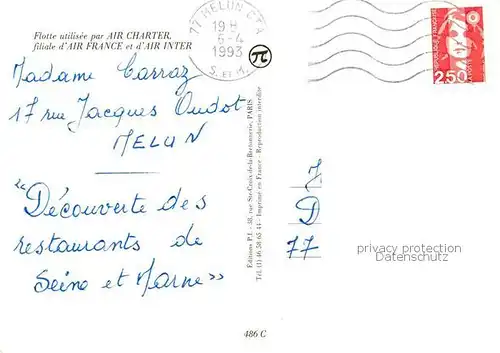 Flotte utilisée par AIR CHARTER,
filiale d'AIR FRANCE et d'AIR INTER
77 MELUN C.T.A
19 H
6-4
1993
S. ET M.
RÉPUBLIQUE FRANÇAISE
2,50
Madame Carraz
17 rue Jacques Oudot
MELUN
"Découverte des
restaurants de
Seine et Marne"
Editions P.I. - 38, rue Ste-Croix-de-la-Bretonnerie, PARIS
Tél. (1) 46 58 63 44 - Imprimé en France - Reproduction interdite
J
D
77
privacy protection
Datenschutz
486 C